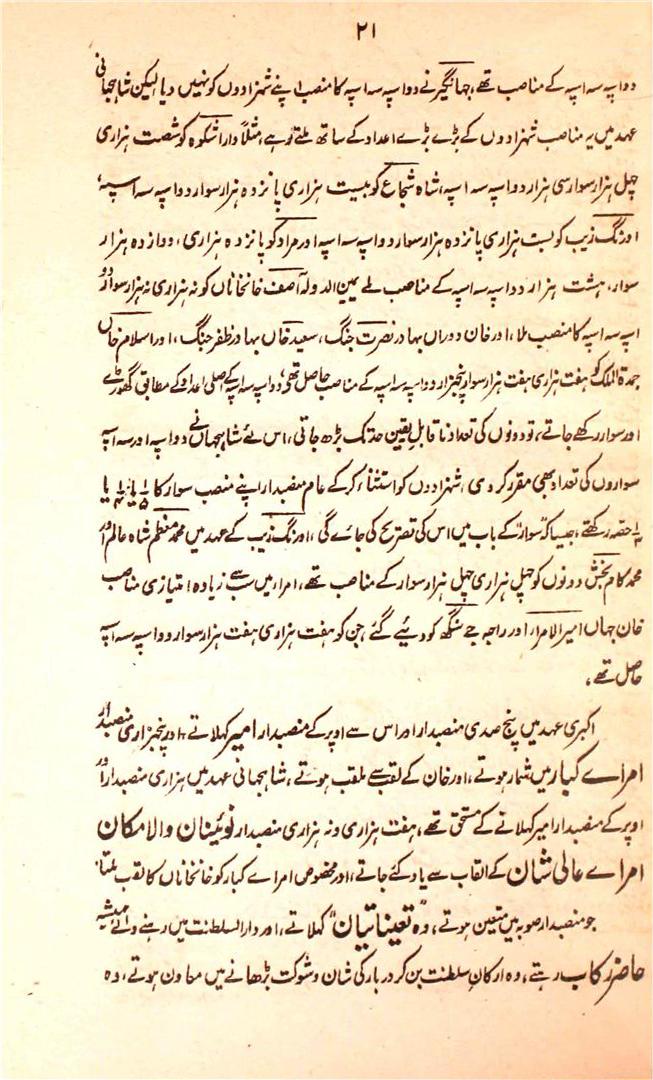 ۲۱
دواسپہ سہ اسپہ کے مناصب تھے، جہانگیر نے دواسپہ سہ اسپہ کا منصب اپنے شہزادوں کو نہیں دیا لیکن شاہجہانی
عہد میں یہ مناصب شہزادوں کے بڑے بڑے اعداد کے ساتھ ملتے رہے، مثلاً داراشکوہ کو شصت ہزاری
چہل ہزار سوار سی ہزار دواسپہ سہ اسپہ، شاہ شجاع کو بیست ہزاری پانزدہ ہزار سوار دواسپہ سہ اسپہ،
اورنگ زیب کو بست ہزاری پانزدہ ہزار سوار دواسپہ سہ اسپہ اور مراد کو پانزدہ ہزاری، دوازدہ ہزار
سوار، ہشت ہزار دواسپہ سہ اسپہ کے مناصب ملے یمین الدولہ آصف خانخاناں کو نہ ہزاری نہ ہزار سوار دو
اسپہ سہ اسپہ کا منصب ملا، اور خان دوراں بہادر نصرت جنگ، سعید خاں بہادر ظفر جنگ، اور اسلام خاں
جمدة الملک کو ہفت ہزاری ہفت ہزار سوار پنجہزار دواسپہ سہ اسپہ کے مناصب حاصل تھے، دواسپہ سہ اسپہ کے اصلی اعداد کے مطابق گھوڑے
اور سوار رکھے جاتے، تو دونوں کی تعداد ناقابل یقین حد تک بڑھ جاتی، اس لئے شاہجہاں نے دواسپہ اور سہ اسپہ
سواروں کی تعداد بھی مقرر کر دی، شہزادوں کو استثناء کر کے عام منصبدار اپنے منصب سوار کا ۱/۵ یا ۱/۴ یا
۱/۳ حصہ رکھتے، جیسا کہ "سوار" کے باب میں اس کی تصریح کی جائے گی، اورنگ زیب کے عہد میں محمد معظم شاہ عالم اور
محمد کام بخش دونوں کو چہل ہزاری چہل ہزار سوار کے مناصب تھے، امراء میں سب سے زیادہ امتیازی مناصب
خان جہاں امیر الامرار اور راجہ جے سنگھ کو دیئے گئے جن کو ہفت ہزاری ہفت ہزار سوار دواسپہ سہ اسپہ
حاصل تھے،
اکبری عہد میں پنج صدی منصبدار اور اس سے اوپر کے منصبدار امیر کہلاتے، اور پنجہزاری منصبدار
امراے کبار میں شمار ہوتے، اور خان کے لقب سے ملقب ہوتے، شاہجہانی عہد میں ہزاری منصبدار اور
اوپر کے منصبدار امیر کہلانے کے مستحق تھے، ہفت ہزاری و نہ ہزاری منصبدار نوئینان والامکان
امراے عالی شان کے القاب سے یاد کئے جاتے، اور مخصوص امراے کبار کو خانخاناں کا لقب ملتا،
جو منصبدار صوبہ میں متعین ہوتے، وہ "تعیناتیان" کہلاتے، اور دارالسلطنت میں رہنے والے ہمیشہ
حاضر رکاب رہتے، وہ ارکان سلطنت بن کر دربار کی شان و شوکت بڑھانے میں معاون ہوتے، وہ